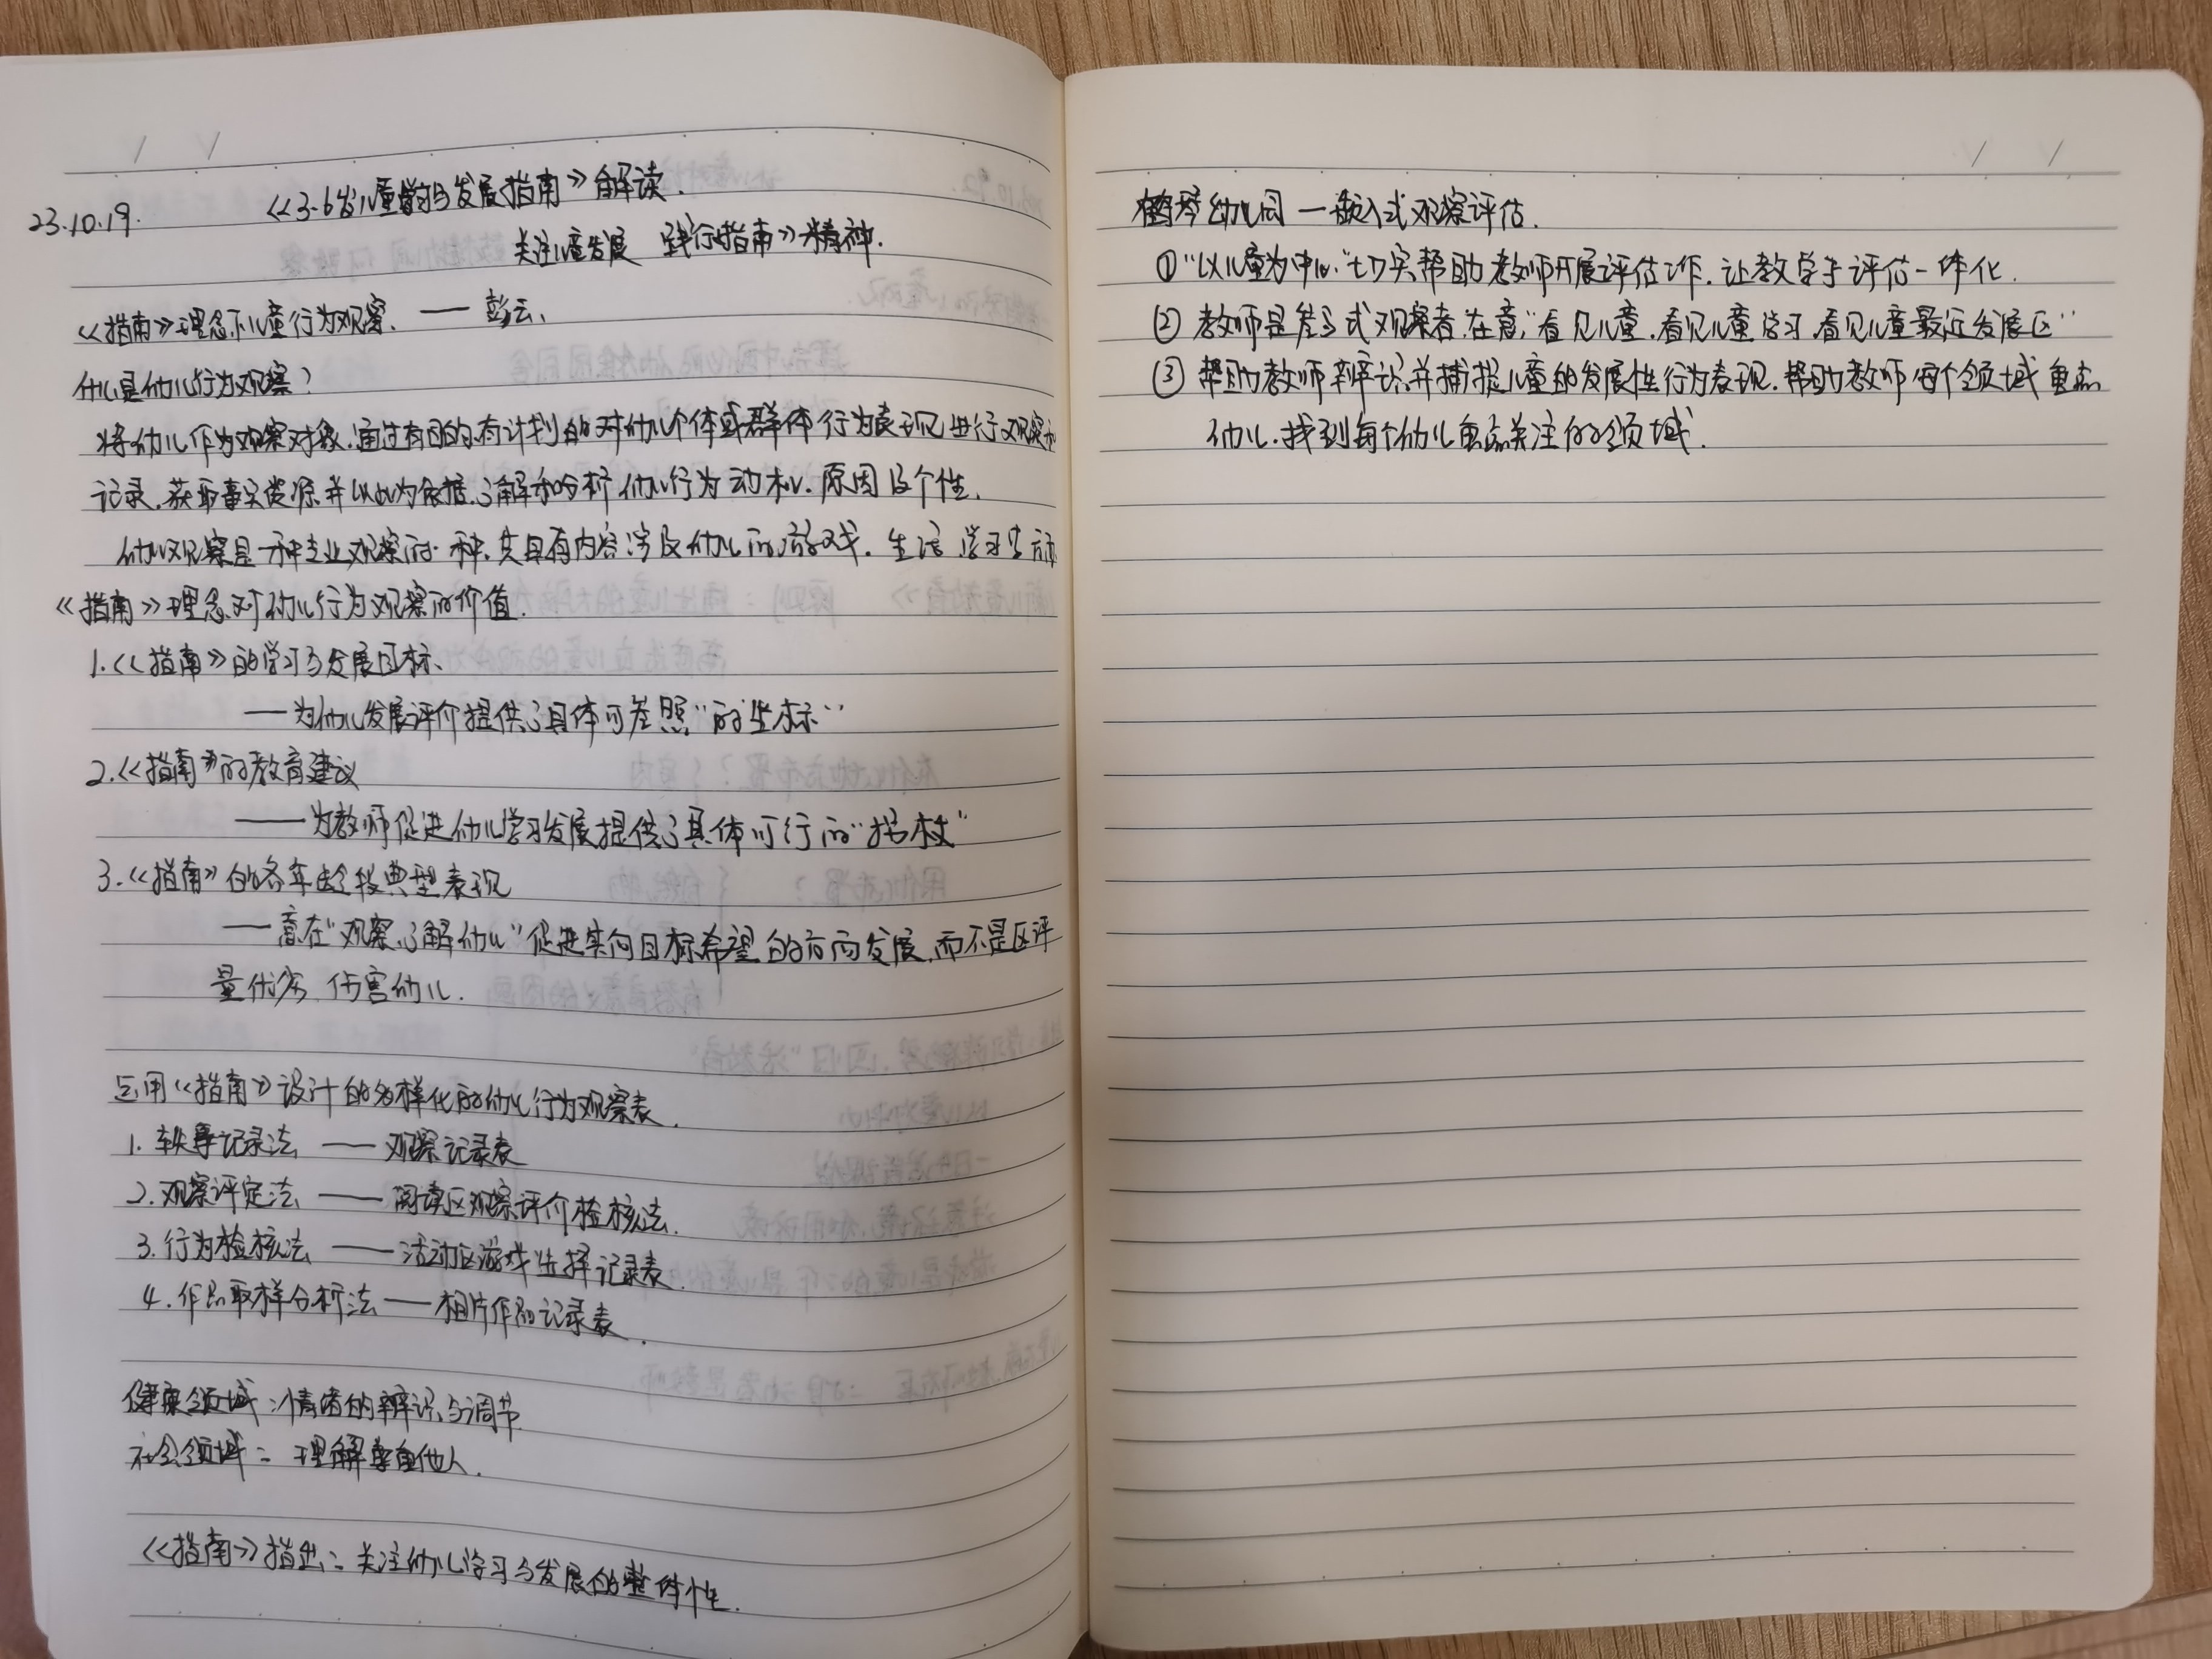 23.10.19. 《3-6岁儿童学习与发展指南》解读.
关注儿童发展 践行指南》精神.
《指南》理念下儿童行为观察. —— 彭云.
什么是幼儿行为观察?
将幼儿作为观察对象.通过有目的有计划的对幼儿个体或群体行为表现进行观察和
记录.获取事实资源并以此为依据.了解和分析幼儿行为动机.原因及个性.
幼儿观察是一种专业观察的一种.其具有内容涉及幼儿的游戏.生活.学习等方面
《指南》理念对幼儿行为观察的价值.
1.《指南》的学习与发展目标.
——为幼儿发展评价提供了具体可参照“的坐标”
2.《指南》的教育建议
——为教师促进幼儿学习发展提供了具体可行的“拐杖”
3.《指南》的各年龄段典型表现
——意在“观察.了解幼儿”促进其向目标希望的方向发展.而不是区评
量优劣.伤害幼儿.
运用《指南》设计的多样化的幼儿行为观察表.
1. 轶事记录法 —— 观察记录表
2. 观察评定法 —— 阅读区观察评价检核法.
3. 行为检核法 —— 活动区游戏选择记录表.
4. 作品取样分析法 —— 相片作品记录表.
健康领域:情绪的辨识与调节
社会领域: 理解尊重他人.
《指南》指出: 关注幼儿学习与发展的整体性.
鹤琴幼儿园 — 嵌入式观察评估.
①“以儿童为中心.”切实帮助教师开展评估工作.让教学于评估一体化.
② 教师是参与式观察者.在意“看见儿童.看见儿童学习.看见儿童最近发展区”
③ 帮助教师辨识并捕捉儿童的发展性行为表现.帮助教师每个领域重点
幼儿.找到每个幼儿重点关注的领域.